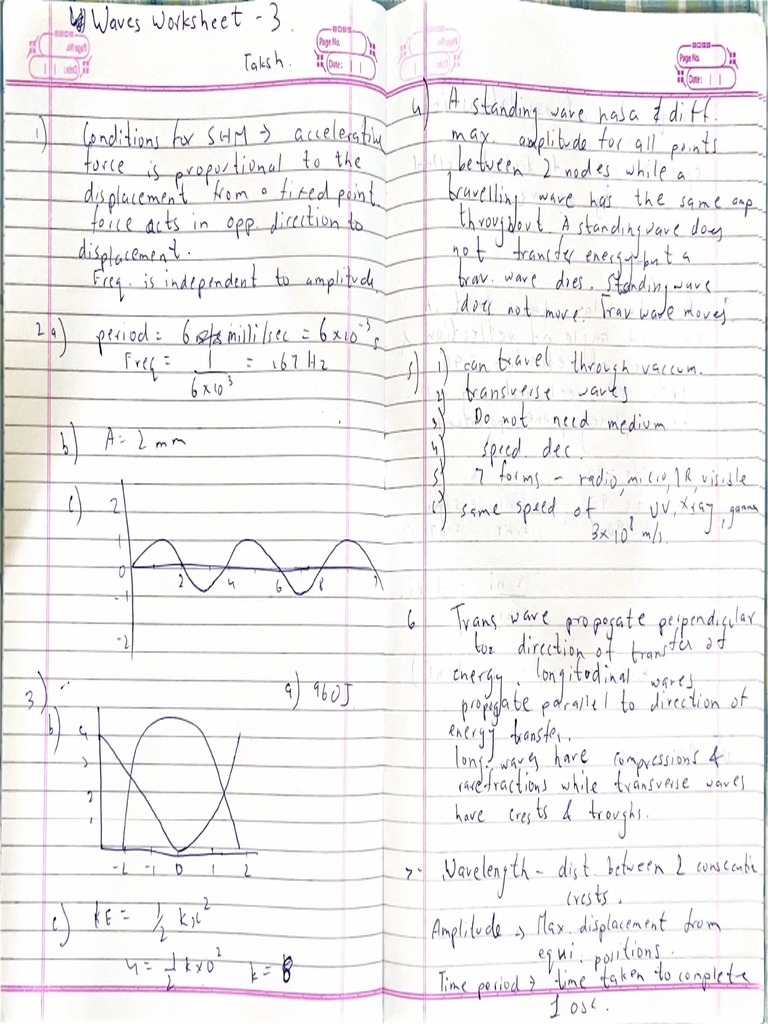 Waves Worksheet - 3.
Taksh.
Page No.
Date:
1) Conditions for SHM → accelerating
force is proportional to the
displacement from a fixed point.
force acts in opp. direction to
displacement.
Freq. is independent to amplitude.
2 a) period = 6 milli/sec = 6×10⁻³ s
Freq = 1/6×10³ = 167 Hz
b) A = 2 mm
c)
2
1
0 2 4 6 8
-1
-2
3) a) 960J
b)
4
3
2
1
-2 -1 0 1 2
c) KE = 1/2 kx²
4 = 1/2 k×0² k = 8
Page No.
Date:
4) A standing wave has a diff.
max. amplitude for all points
between 2 nodes while a
travelling wave has the same amp
throughout. A standing wave does
not transfer energy but a
trav. wave does. Standing wave
does not move. Trav wave moves.
5) 1) can travel through vaccum.
2) transverse waves
3) Do not need medium
4) speed dec.
5) 7 forms - radio, micro, IR, visible
UV, xray, gamma
6) same speed of
3×10⁸ m/s.
6 Trans wave propogate perpendicular
to direction of transfer of
energy. longitudinal waves
propogate parallel to direction of
energy transfer.
long. waves have compressions &
rarefractions while transverse waves
have crests & troughs.
7- Wavelength - dist. between 2 consecutive
crests.
Amplitude → Max. displacement from
equi. positions.
Time period → time taken to complete
1 osc.